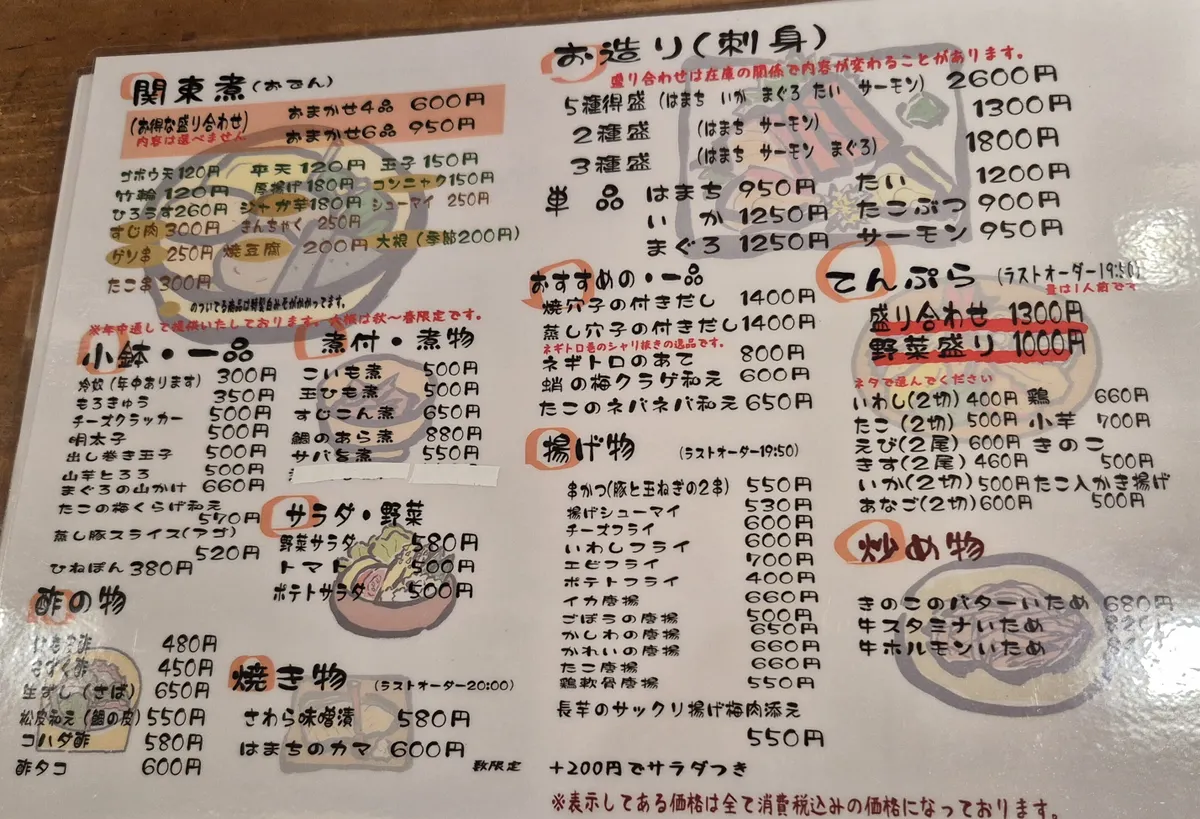 関東煮(おでん)
(お得な盛り合わせ)
内容は選べません
おまかせ4品 600円
おまかせ6品 950円
ゴボウ天120円 平天120円 玉子150円
竹輪120円 厚揚げ180円 コンニャク150円
ひろうす260円 ジャガ芋180円 シューマイ 250円
すじ肉300円 きんちゃく 250円
ゲソ串 250円 焼豆腐 200円 大根(季節200円)
たこ串300円
のついてる商品は特製白みそがかかってます。
※年中通して提供いたしております。大根は秋〜春限定です。
小鉢・一品
冷奴(年中あります) 300円
もろきゅう 350円
チーズクラッカー 500円
明太子 500円
出し巻き玉子 500円
山芋とろろ 500円
まぐろの山かけ 660円
たこの梅くらげ和え
570円
蒸し豚スライス(アゴ)
520円
ひねぽん 380円
酢の物
480円
450円
生ずし(さば) 650円
松皮和え(鯛の皮) 550円
コハダ酢 580円
酢タコ 600円
煮付・煮物
こいも煮 500円
玉ひも煮 500円
すじこん煮 650円
鯛のあら煮 880円
サバ煮 550円
サラダ・野菜
野菜サラダ 580円
トマト 500円
ポテトサラダ 500円
焼き物 (ラストオーダー20:00)
さわら味噌漬 580円
はまちのカマ 600円
数限定
お造り(刺身)
盛り合わせは在庫の関係で内容が変わることがあります。
5種得盛 (はまち いか まぐろ たい サーモン) 2600円
2種盛 (はまち サーモン) 1300円
3種盛 (はまち サーモン まぐろ) 1800円
単品 はまち 950円 たい 1200円
いか 1250円 たこぶつ 900円
まぐろ 1250円 サーモン 950円
おすすめの・一品
焼穴子の付きだし 1400円
蒸し穴子の付きだし 1400円
ネギトロ巻のシャリ抜きの逸品です。
ネギトロのあて 800円
蛸の梅クラゲ和え 600円
たこのネバネバ和え 650円
揚げ物 (ラストオーダー19:50)
串かつ(豚と玉ねぎの2串) 550円
揚げシューマイ 530円
チーズフライ 600円
いわしフライ 600円
エビフライ 700円
ポテトフライ 400円
イカ唐揚 660円
ごぼうの唐揚 500円
かしわの唐揚 650円
かれいの唐揚 660円
たこ唐揚 660円
鶏軟骨唐揚 550円
長芋のサックリ揚げ梅肉添え
550円
+200円でサラダつき
※表示してある価格は全て消費税込みの価格になっております。
てんぷら (ラストオーダー19:50)
量は1人前です
盛り合わせ 1300円
野菜盛り 1000円
ネタで選んでください
いわし(2切) 400円 鶏 660円
たこ(2切) 500円 小芋 700円
えび(2尾) 600円 きのこ
きす(2尾) 460円 500円
いか(2切) 500円 たこ入かき揚げ
あなご(2切) 600円 500円
炒め物
きのこのバターいため 680円
牛スタミナいため
牛ホルモンいため